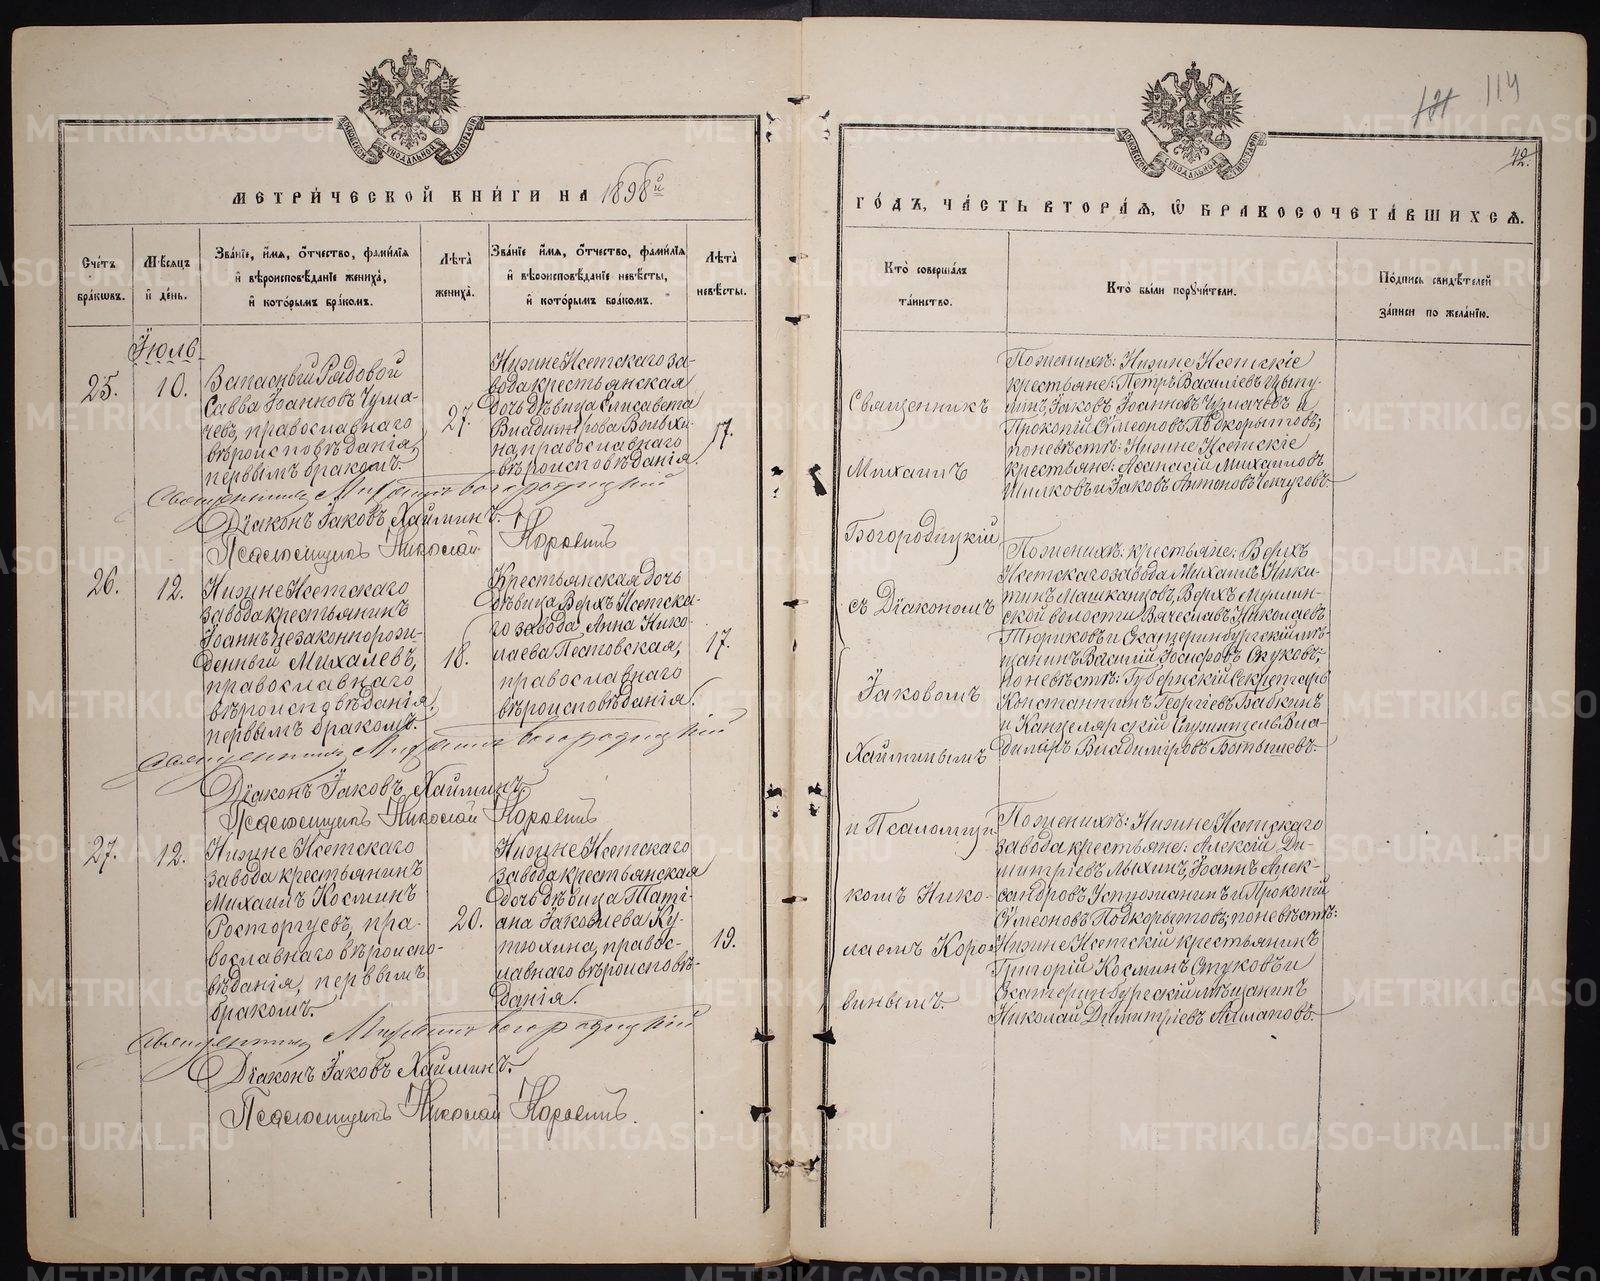 МЕТРИ́ЧЕСКОЙ КНИ́ГИ НА 1898й
ГО́ДЪ, ЧА́СТЬ ВТОРА́Я, Ѡ БРАКОСОЧЕТА́ВШИХСЯ.
114
42.
ХАРЬКОВСКОЙ СѴНОДАЛЬНОЙ ТИПОГРАФІИ
Сче́тъ бра́кωвъ.
Мѣ́сяцъ и де́нь.
Зва́нїе, и́мя, ѻ́тчество, фами́лїя
и вѣроисповѣ́данїе жениха̀,
и кото́рымъ бра́комъ.
Лѣ́та жениха̀.
Зва́нїе и́мя, ѻ́тчество, фами́лїя
и вѣроисповѣ́данїе невѣ́сты,
и кото́рымъ бра́комъ.
Лѣ́та невѣ́сты.
Кто̀ соверша́лъ
та́инство.
Кто̀ бы́ли порꙋчи́тели.
По́дпись свидѣ́телей
за́писи по жела́нїю.
Іюль
25.
10.
Запасный Рядовой
Савва Іоанновъ Чума-
чевъ, православнаго
вѣроисповѣданія,
первымъ бракомъ.
27.
Нижне Исетскаго за-
вода крестьянская
дочь дѣвица Елисавета
Владимірова Вольхи-
на, православнаго
вѣроисповѣданія.
17.
Священникъ Михаилъ Богородицкій
Діаконъ Іаковъ Хайминъ.
Псаломщикъ Николай Коровинъ
26.
12.
Нижне Исетскаго
завода крестьянинъ
Іоаннъ незаконнорож-
денный Михалевъ,
православнаго
вѣроисповѣданія,
первымъ бракомъ.
18.
Крестьянская дочь
дѣвица Верхъ Исетска-
го завода Анна Нико-
лаева Пестовская,
православнаго
вѣроисповѣданія.
17.
Священникъ Михаилъ Богородицкій
Діаконъ Іаковъ Хайминъ.
Псаломщикъ Николай Коровинъ
27.
12.
Нижне Исетскаго
завода крестьянинъ
Михаилъ Косминъ
Росторгуевъ, пра-
вославнаго вѣроиспо-
вѣданія, первымъ
бракомъ.
20.
Нижне Исетскаго
завода крестьянская
дочь дѣвица Тати-
ана Іаковлева Ку-
тюхина, правос-
лавнаго вѣроисповѣ-
данія.
19.
Священникъ Михаилъ Богородицкій
Діаконъ Іаковъ Хайминъ.
Псаломщикъ Николай Коровинъ.
Священникъ
Михаилъ
Богородицкій
съ Діакономъ
Іаковомъ
Хайминымъ
и Псаломщи-
комъ Нико-
лаемъ Коро-
винымъ.
По женихѣ: Нижне Исетскіе
крестьяне: Петръ Василіевъ Цыпу-
линъ, Іаковъ Іоанновъ Чумачевъ и
Прокопій Сѵмеоновъ Подкорытовъ;
по невѣстѣ: Нижне Исетскіе
крестьяне: Аѳанасій Михаиловъ
Шилковъ и Іаковъ Антоновъ
По женихѣ: крестьяне: Верхъ
Исетскаго завода Михаилъ Ники-
тинъ Машканцовъ, Верхъ Муллин-
ской волости Вячеславъ Николаевъ
Тюриковъ и Екатеринбургскій мѣ-
щанинъ Василій Іосифовъ Окуковъ;
по невѣстѣ: Губернскій Секретарь
Константинъ Георгіевъ Бабкинъ
и Канцелярскій Служитель Вла-
диміръ Владиміровъ Ботышевъ.
По женихѣ: Нижне Исетскаго
завода крестьяне: Алексій Ди-
митріевъ Лыхинъ, Іоаннъ Алек-
сандровъ Устюжанинъ и Прокопій
Сѵмеоновъ Подкорытовъ; по невѣстѣ:
Нижне Исетскій крестьянинъ
Григорій Косминъ Стуковъ и
Екатеринбургскій мѣщанинъ
Николай Димитріевъ
METRIKI.GASO-URAL.RU